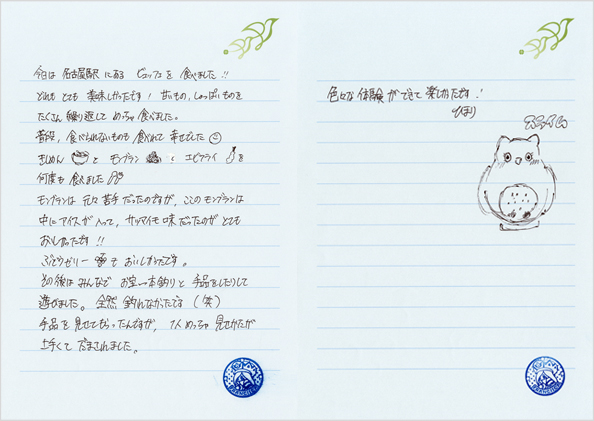 今日は 名古屋駅 にある ビュッフェを 食べました!!
どれも とても 美味しかったです! 甘いもの、しょっぱいものを
たくさん 繰り返して めっちゃ 食べました。
普段、食べられないものも 食べれて 幸せでした
きしめん と モンブラン と エビフライ を
何度も 食べました
モンブランは 元々 苦手 だったのですが、ここの モンブランは
中に アイスが 入って、サツマイモ 味 だったのが とても
おいしかったです!!
ぶどうゼリー も おいしかったです。
その後は みんなで お宝一本釣り と 手品をしたりして
遊びました。 全然 釣れなかったです (笑)
手品を 見せてもらったんですが、1人 めっちゃ 見せかたが
上手くて だまされました。
色々な 体験 が できて 楽しかったです!